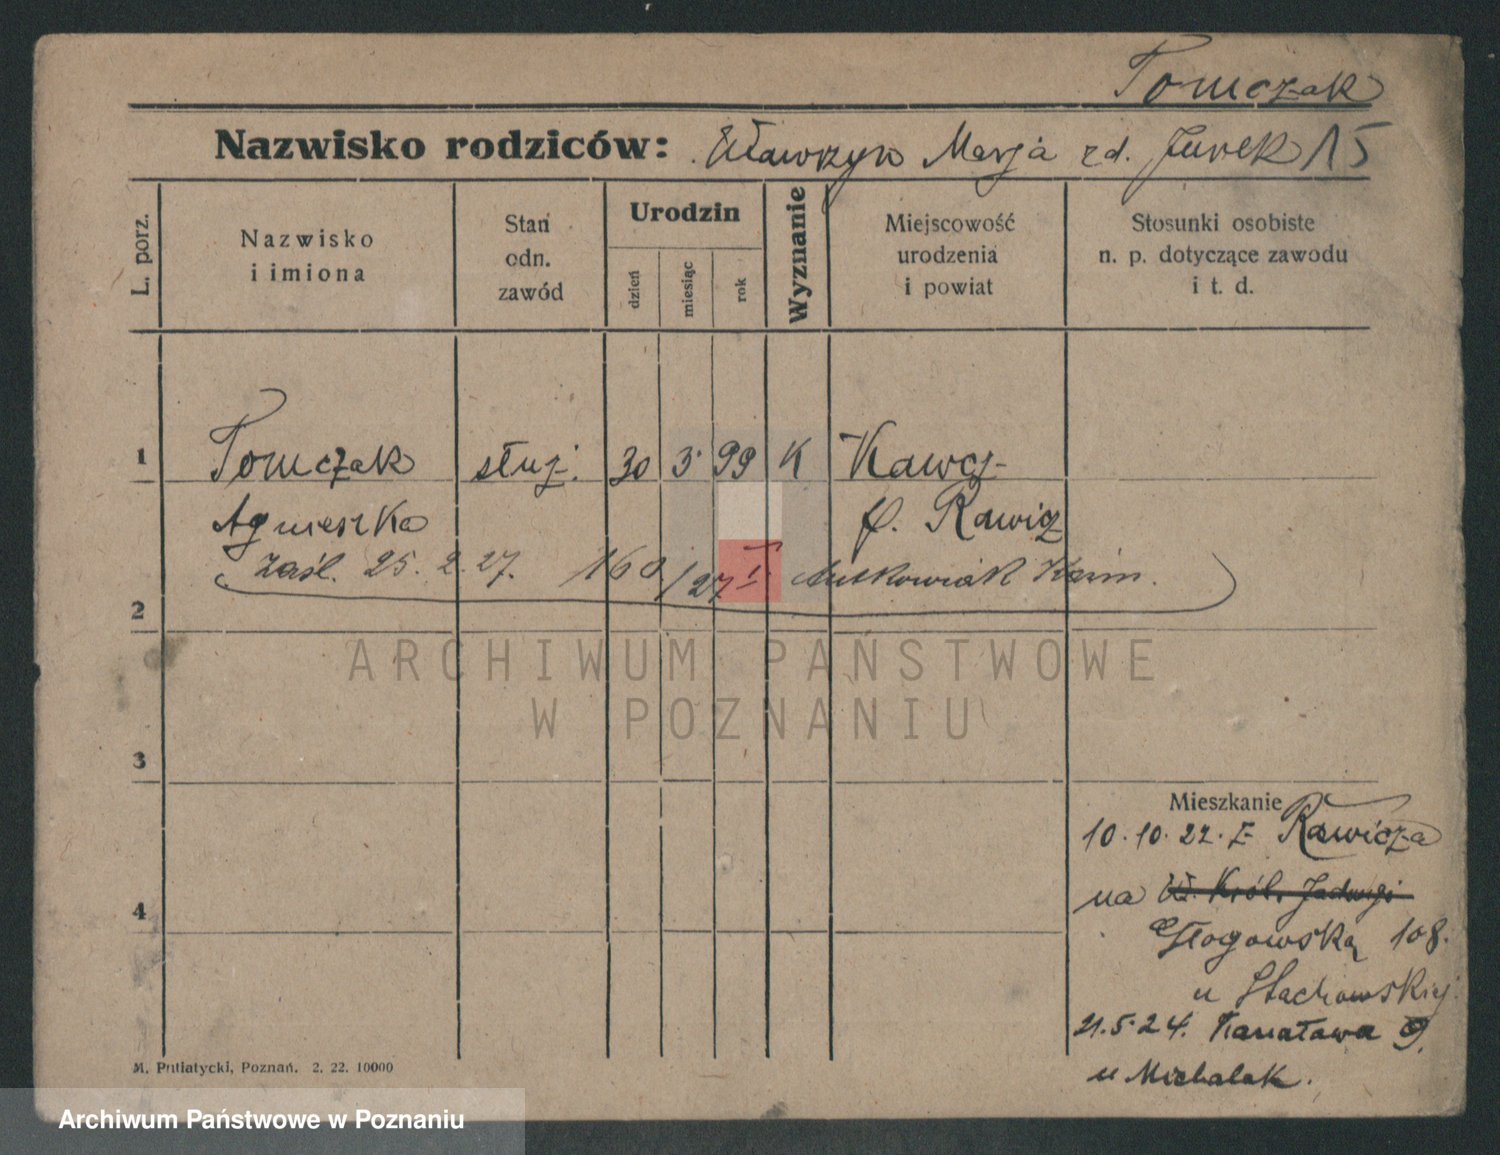 Tomczak
Nazwisko rodziców: Wawrzyn Marja zd. Jurek 15
L. porz.
Nazwisko
i imiona
Stan
odn.
zawód
Urodzin
dzień
miesiąc
rok
Wyznanie
Miejscowość
urodzenia
i powiat
Stosunki osobiste
n. p. dotyczące zawodu
i t. d.
1 Tomczak służ. 30 3 99 K Kawcz
Agnieszka p. Rawicz
zaśl. 25. 2. 27. 160/27 I Kaźm.
2
ARCHIWUM PAŃSTWOWE
W POZNANIU
3
Mieszkanie
10.10.22. z Rawicza
4 na W. Król. Jadwigi
Głogowska 108.
u Stachowskiej
21.5.24. Kanałowa 9.
u Michalak.
M. Putiatycki, Poznań. 2. 22. 10000
Archiwum Państwowe w Poznaniu